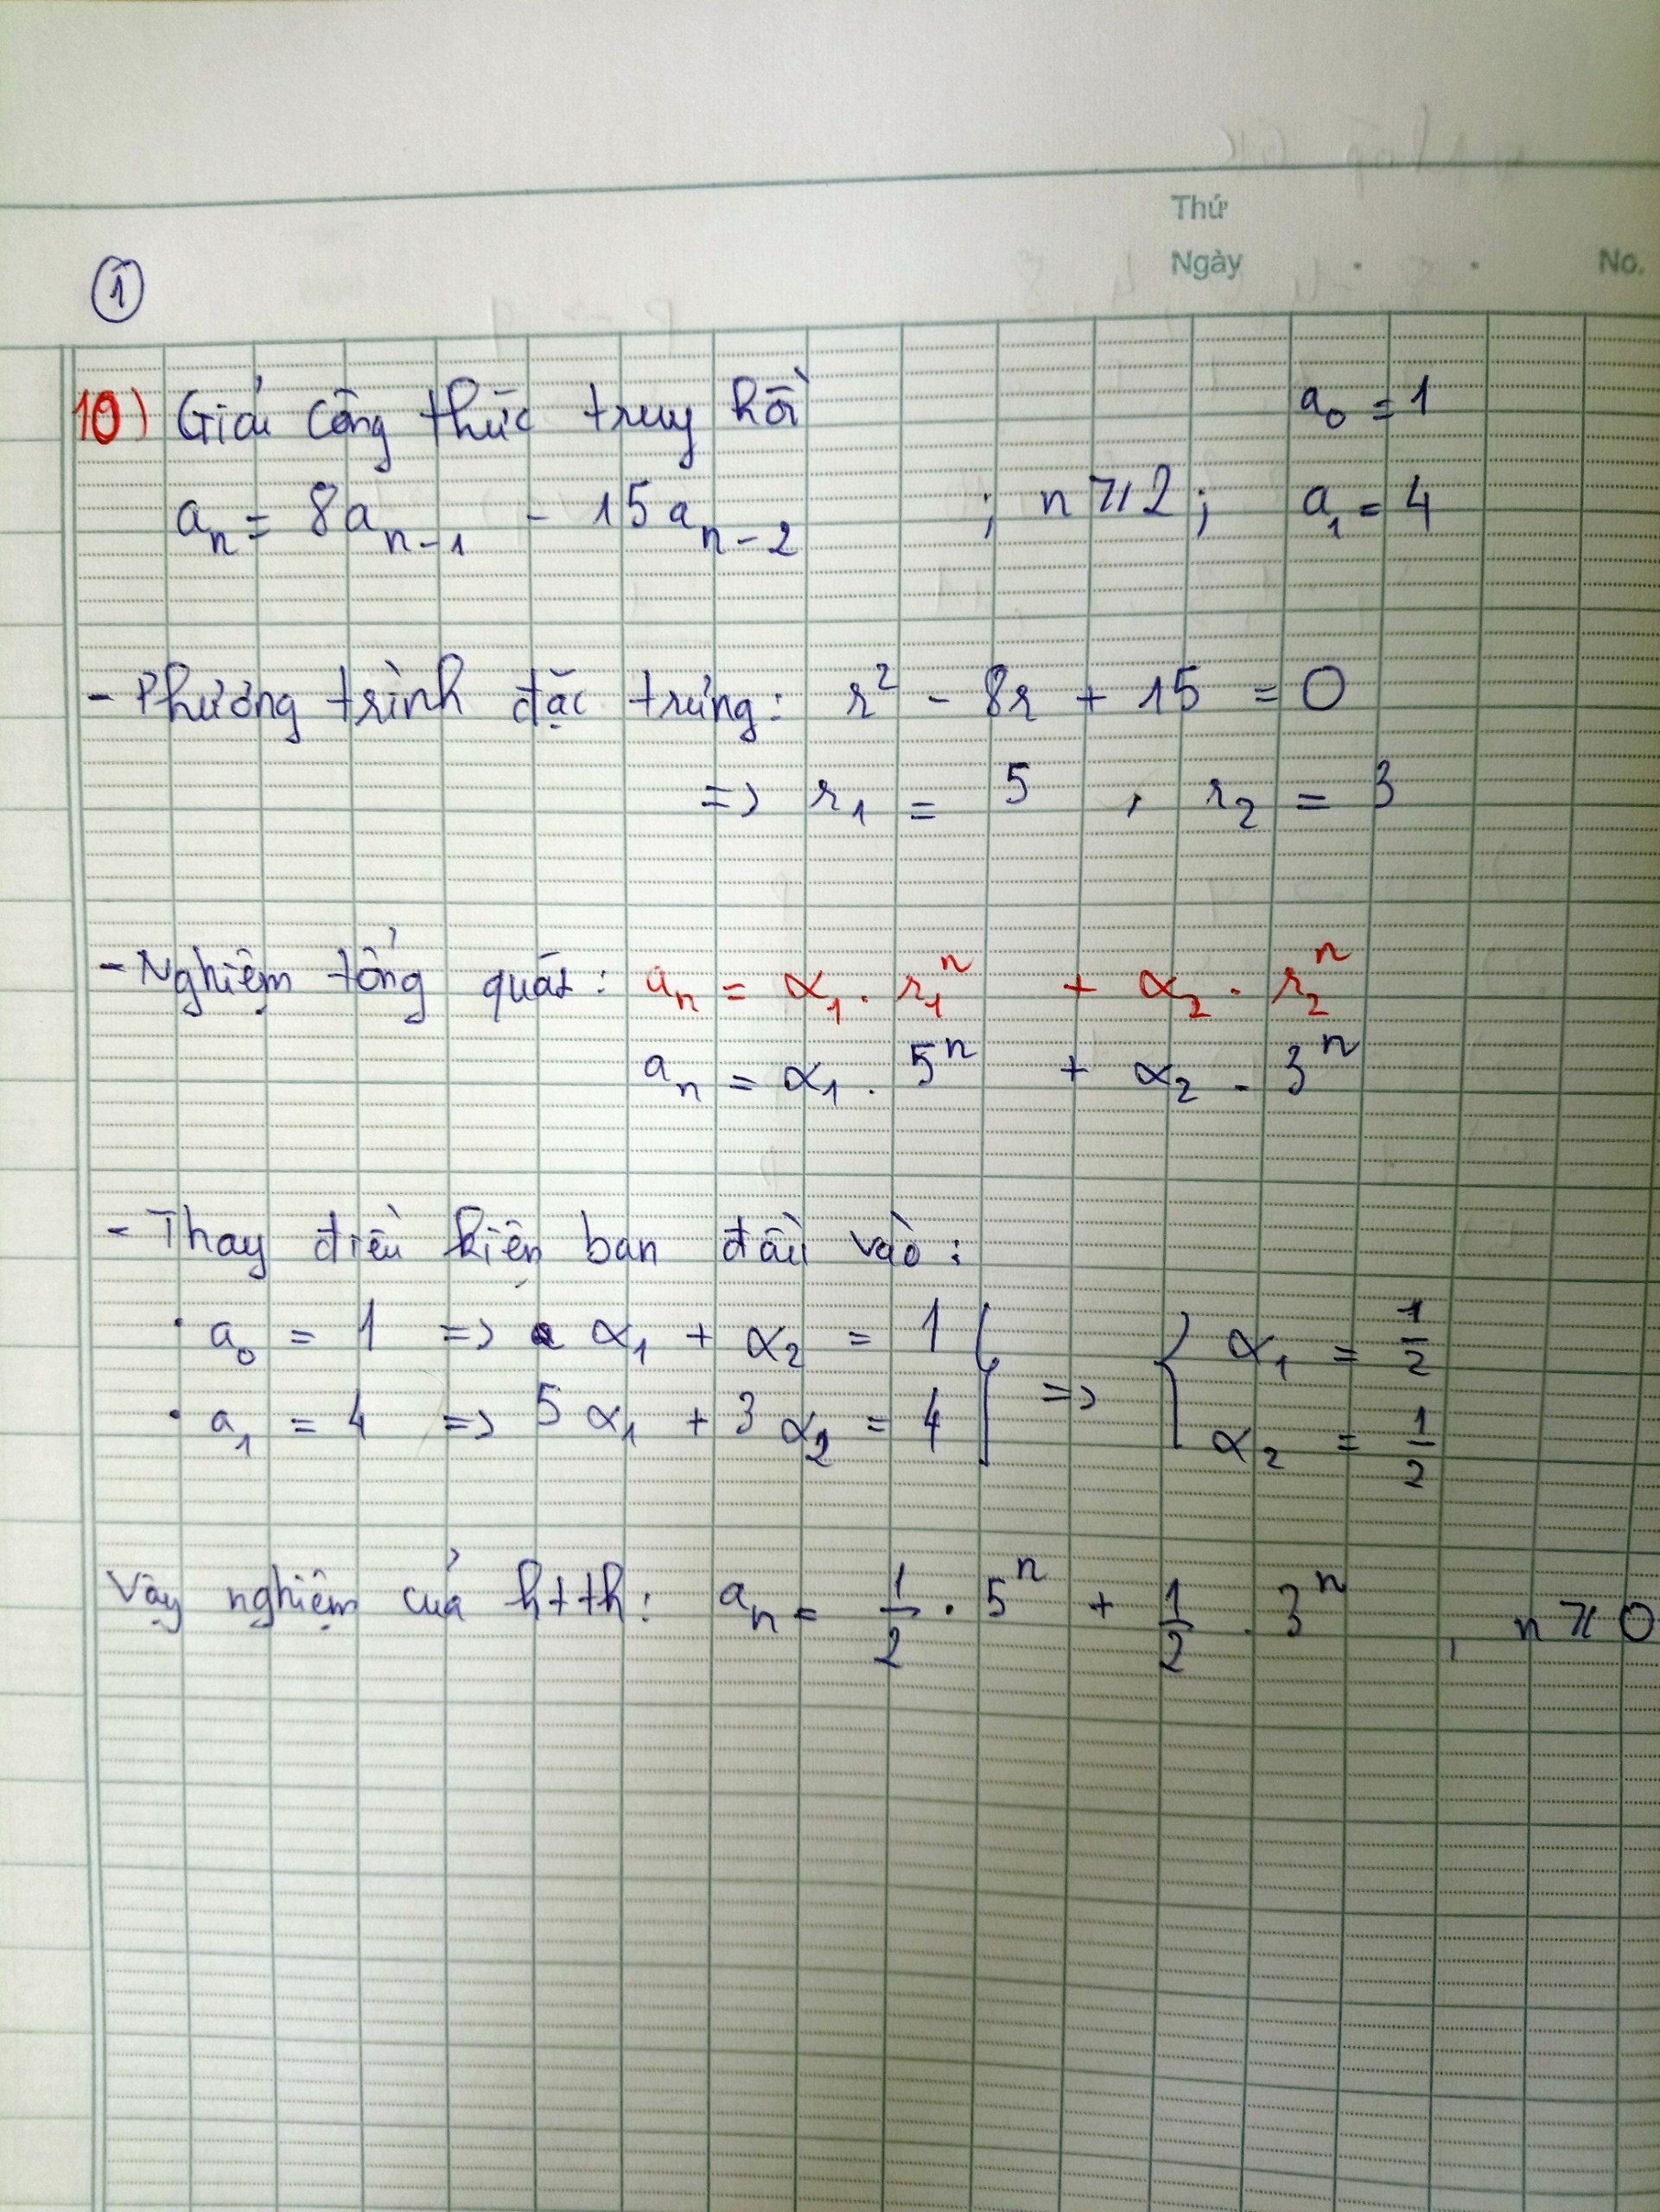 Thứ
Ngày . . No.
①
10) Giải công thức truy hồi a₀ = 1
aₙ = 8aₙ₋₁ - 15aₙ₋₂ ; n ≥ 2 ; a₁ = 4
- Phương trình đặc trưng: r² - 8r + 15 = 0
=> r₁ = 5 , r₂ = 3
- Nghiệm tổng quát: aₙ = α₁ . r₁ⁿ + α₂ . r₂ⁿ
aₙ = α₁ . 5ⁿ + α₂ . 3ⁿ
- Thay điều kiện ban đầu vào:
• a₀ = 1 => α₁ + α₂ = 1 } => { α₁ = 1/2
• a₁ = 4 => 5α₁ + 3α₂ = 4 } α₂ = 1/2
Vậy nghiệm của htth: aₙ = 1/2 . 5ⁿ + 1/2 . 3ⁿ , n ≥ 0